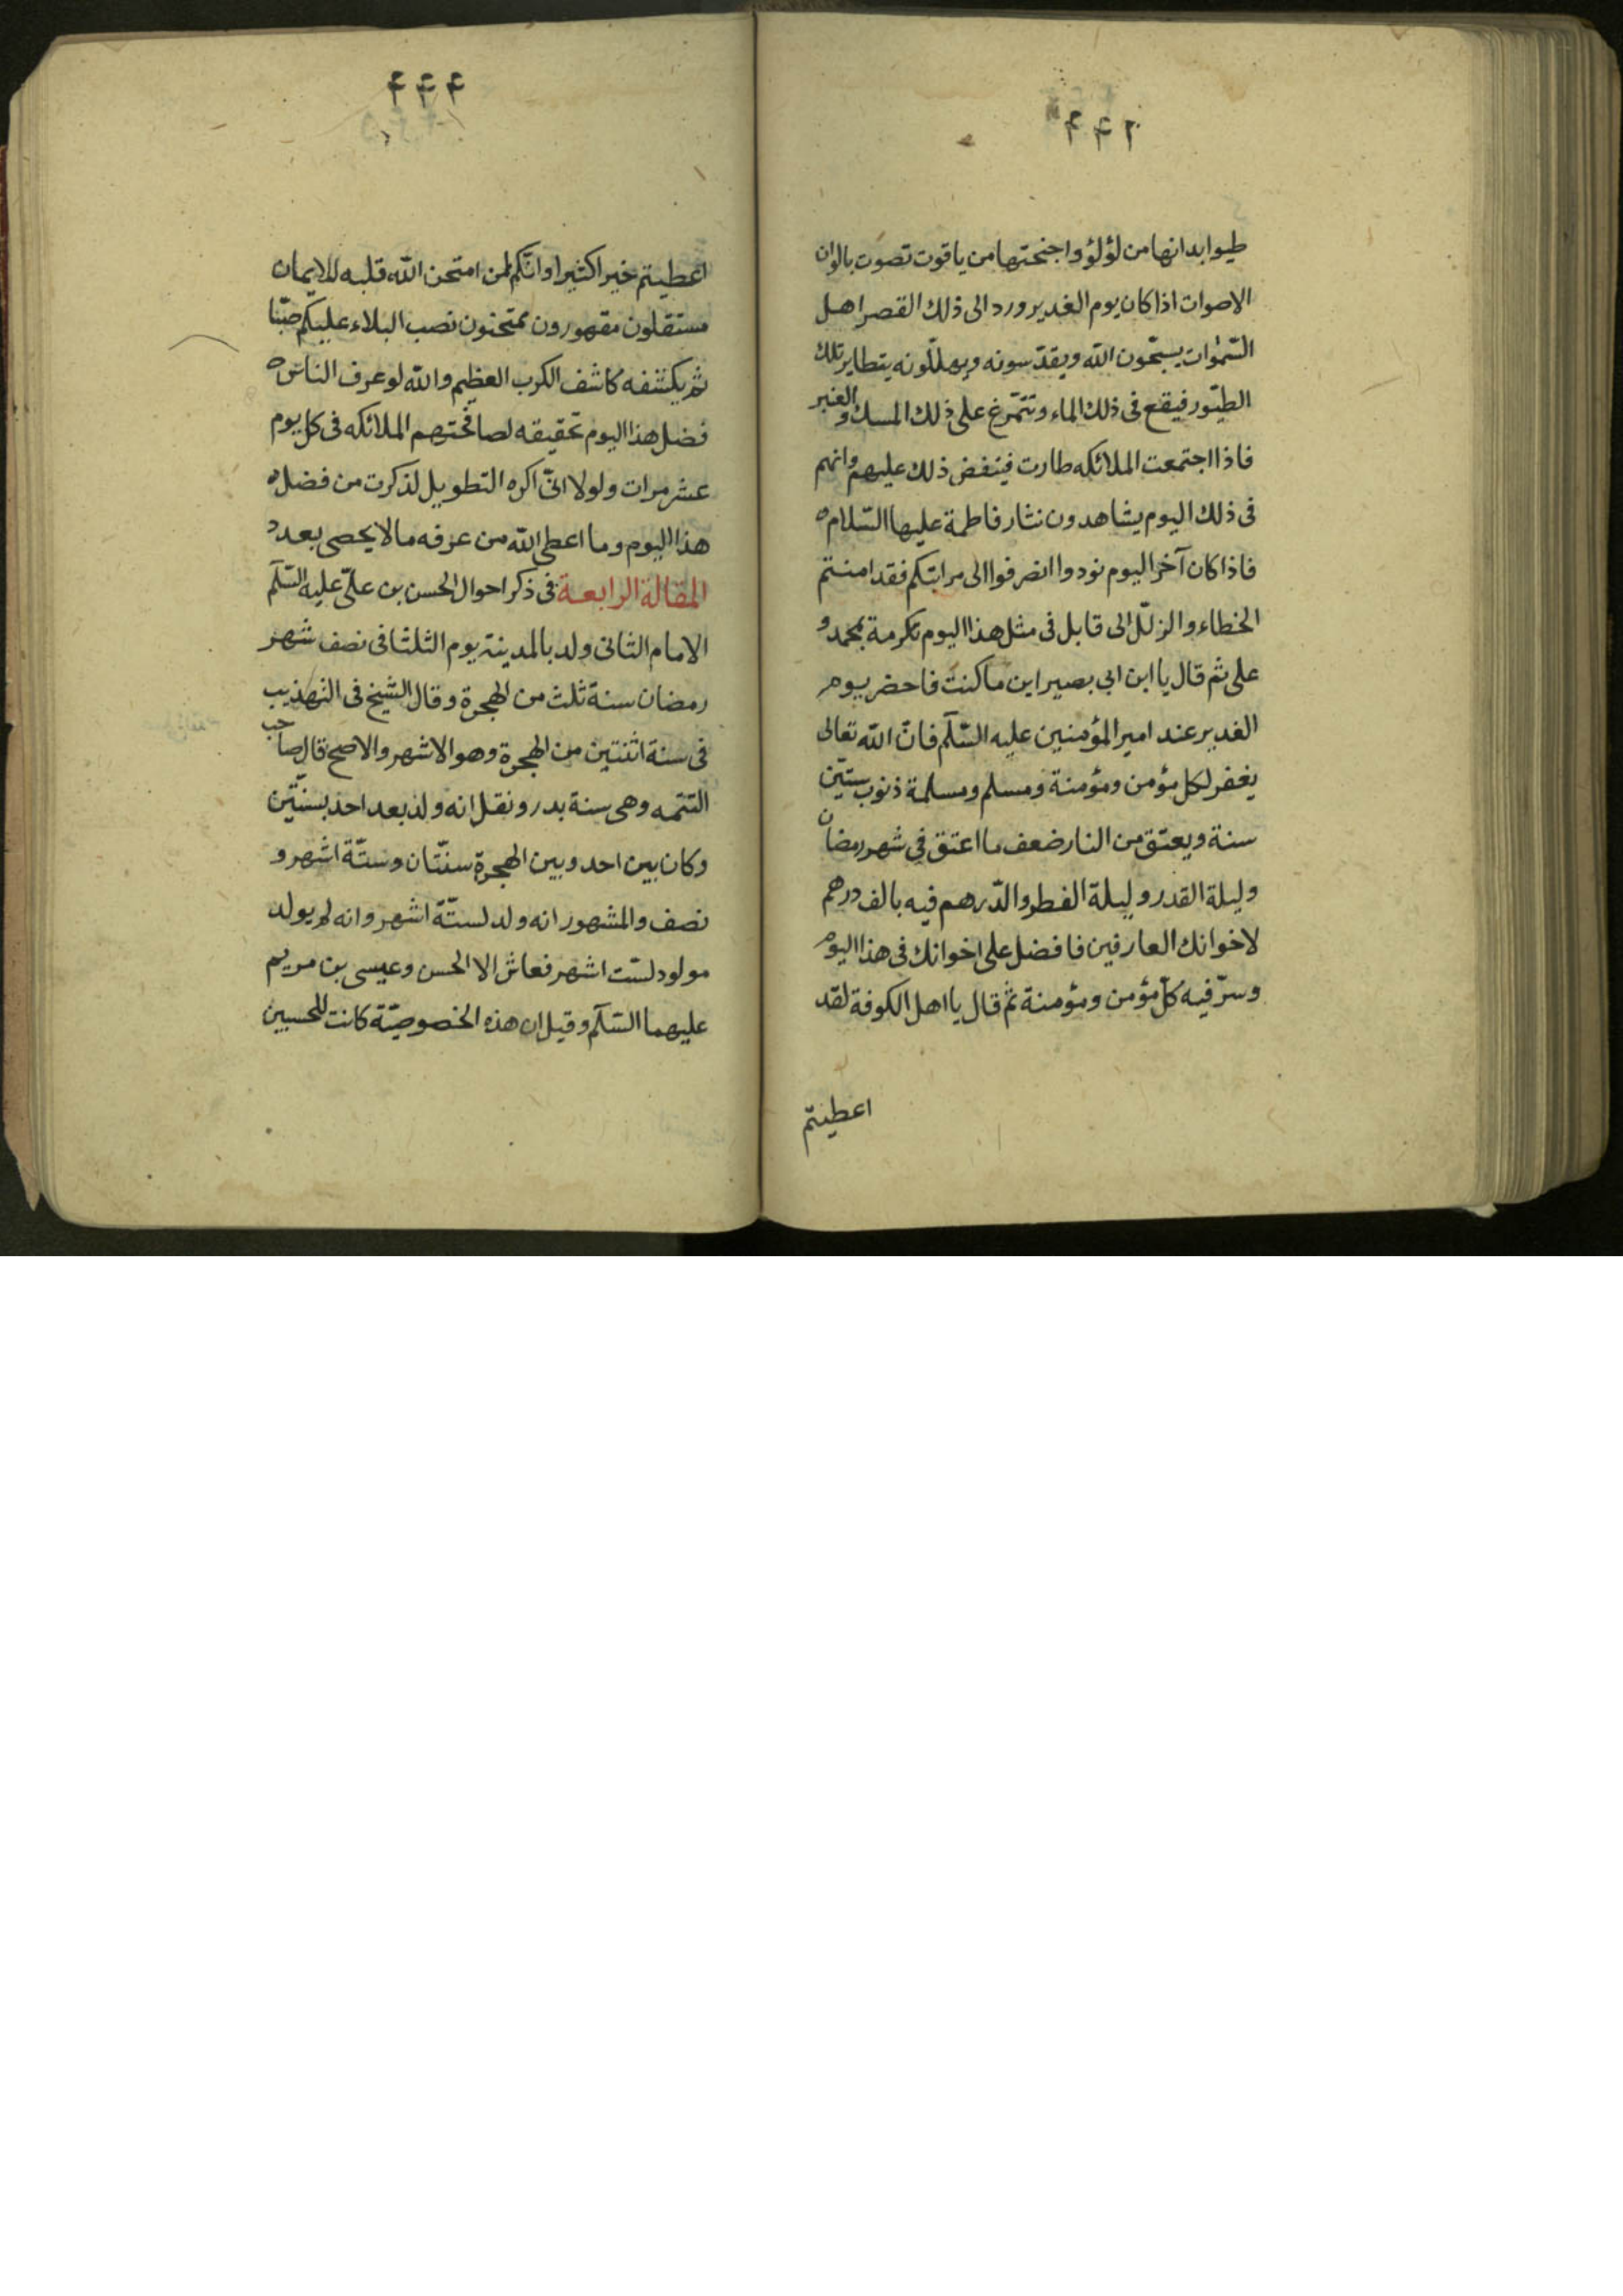 ۴۴۲
طيوابدانها من لؤلؤ واجنحتها من ياقوت تصوت بالوان
الاصوات اذا كان يوم الغدير ورد الى ذلك القصر اهل
السّمٰوات يسبّحون اللّه ويقدّسونه ويهلّلونه يتطاير تلك
الطيّور فيقع فى ذلك الماء وتتمّرغ على ذلك المسك والعنبر
فاذا اجتمعت الملائكه طارت فينفض ذلك عليهم وانهم
فى ذلك اليوم يشاهدون نثار فاطمة عليها السّلام ه
فاذا كان آخر اليوم نودوا انصرفوا الى مراتبكم فقد امنتم
الخطاء والزلل الى قابل فى مثل هذا اليوم تكرمة بمحمد و
على ثم قال يا ابن ابى بصير اين ما كنت فاحضر يوم
الغدير عند امير المؤمنين عليه السّلم فانّ اللّه تعالى
يغفر لكل مؤمن ومؤمنة ومسلم ومسلمة ذنوب ستّين
سنة ويعتق من النار ضعف ما اعتق فى شهر رمضان
وليلة القدر وليلة الفطر والدّرهم فيه بالف درهم
لاخوانك العارفين فافضل على اخوانك فى هذا اليوم
وسرّ فيه كلّ مؤمن ومؤمنة ثم قال يا اهل الكوفة لقد
اعطيتم
۴۴۴
اعطيتم خيرا كثيرا وانّكم لمن امتحن اللّه قلبه للايمان
مستقلون مقهورون ممتحنون نصب البلاء عليكم صبّا
ثم يكشفه كاشف الكرب العظيم واللّه لو عرف الناس ه
فضل هذا اليوم تحقيقه لصافحتهم الملائكه فى كل يوم
عشر مرات ولولا انّى اكره التطويل لذكرت من فضل ه
هذا اليوم وما اعطى اللّه من عرفه مالا يحصى بعدد
المقالة الرابعة فى ذكر احوال الحسن بن علىّ عليه السّلم
الامام الثانى ولد بالمدينة يوم الثلثا فى نصف شهر
رمضان سنة ثلث من الهجرة وقال الشيخ فى التهذيب
فى سنة اثنتين من الهجرة وهو الاشهر والاصح قال صاحب
التتمه وهى سنة بدر ونقل انه ولد بعد احد بسنتّين
وكان بين احد وبين الهجرة سنّتان وستّة اشهر و
نصف والمشهور انه ولد لستّة اشهر وانه لم يولد
مولود لستّ اشهر فعاش الا الحسن وعيسى بن مريم
عليهما السّلم وقيل ان هذه الخصوصيّة كانت للحسين